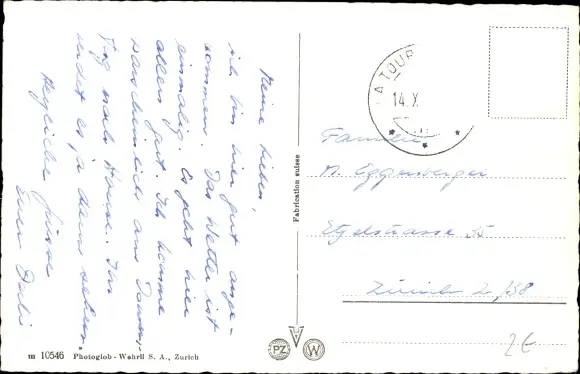 Meine Lieben,
ich bin hier gut ange-
kommen. Das Wetter ist
einmalig. Es geht hier
alles gut. Ich komme
wahrscheinlich am Donners-
Tag nach Hause. Ihr
es ja dann sehen.
Herzliche Grüsse
Euer
LA TOUR
14. X
Familie
M. Eggenberger
Etzelstrasse 35
Zürich 2/38
2€
Fabrication suisse
m 10546 Photoglob-Wehrli S. A., Zurich
PZ W